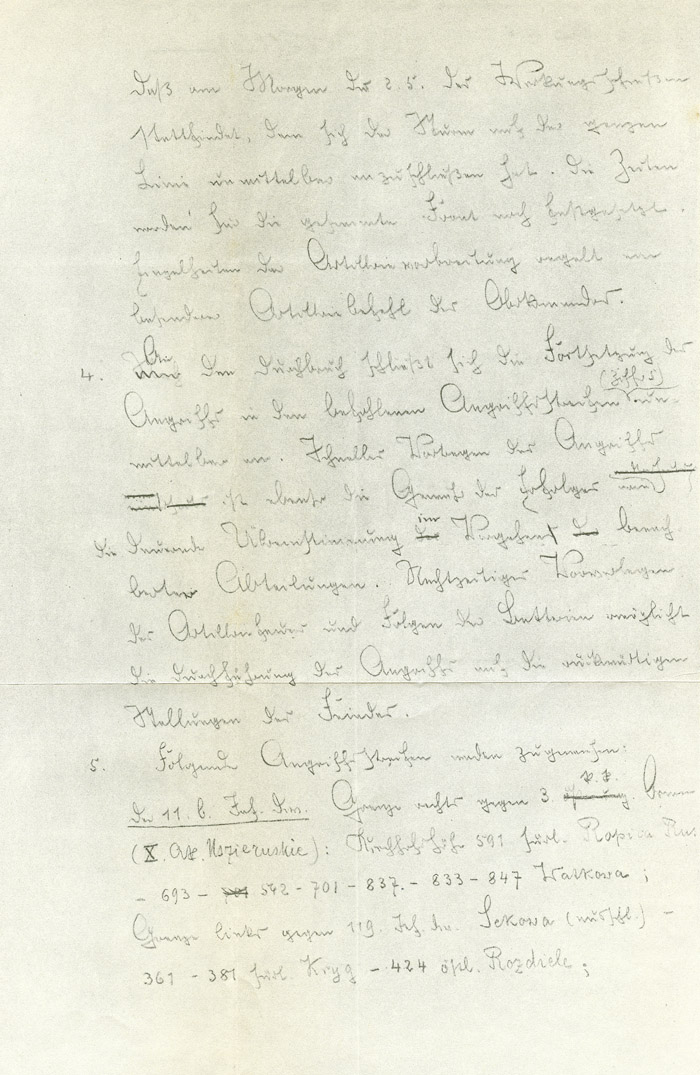 daß am Morgen des 2. 5. das Wirkungsschießen
stattfindet, dem sich der Sturm auf der ganzen
Linie unmittelbar anzuschließen hat. Die Zeiten
werden für die gesamte Front noch festgesetzt.
Einzelheiten der Artillerievorbereitung regelt ein
besonderer Artilleriebefehl des Obkommandos.
4. An den Durchbruch schließt sich die Fortsetzung des
Angriffs in den befohlenen Angriffsstreifen (Ziff. 5) un-
mittelbar an. Schnelles Vortragen des Angriffs
ist ebenso die Gewähr des Erfolges
die dauernde Übereinstimmung im Vorgehen benach-
barter Abteilungen. Rechtzeitiges Vorverlegen
des Artilleriefeuers und Folgen der Batterien ermöglicht
die Durchführung des Angriffs auf die rückwärtigen
Stellungen des Feindes.
5. Folgende Angriffsstreifen werden zugewiesen:
Der 11. b. Inf. Div. Grenze rechts gegen 3. k. k.
(X. Ak. Mszieruskie): Kirchhofhöhe 591 südl. Ropica Rus.
- 693 - 542 - 701 - 837. - 833 - 847 Watkowa;
Grenze links gegen 119. Inf. Div. Sekowa (ausschl.) -
361 - 381 südl. Kryg - 424 östl. Rozdiele;